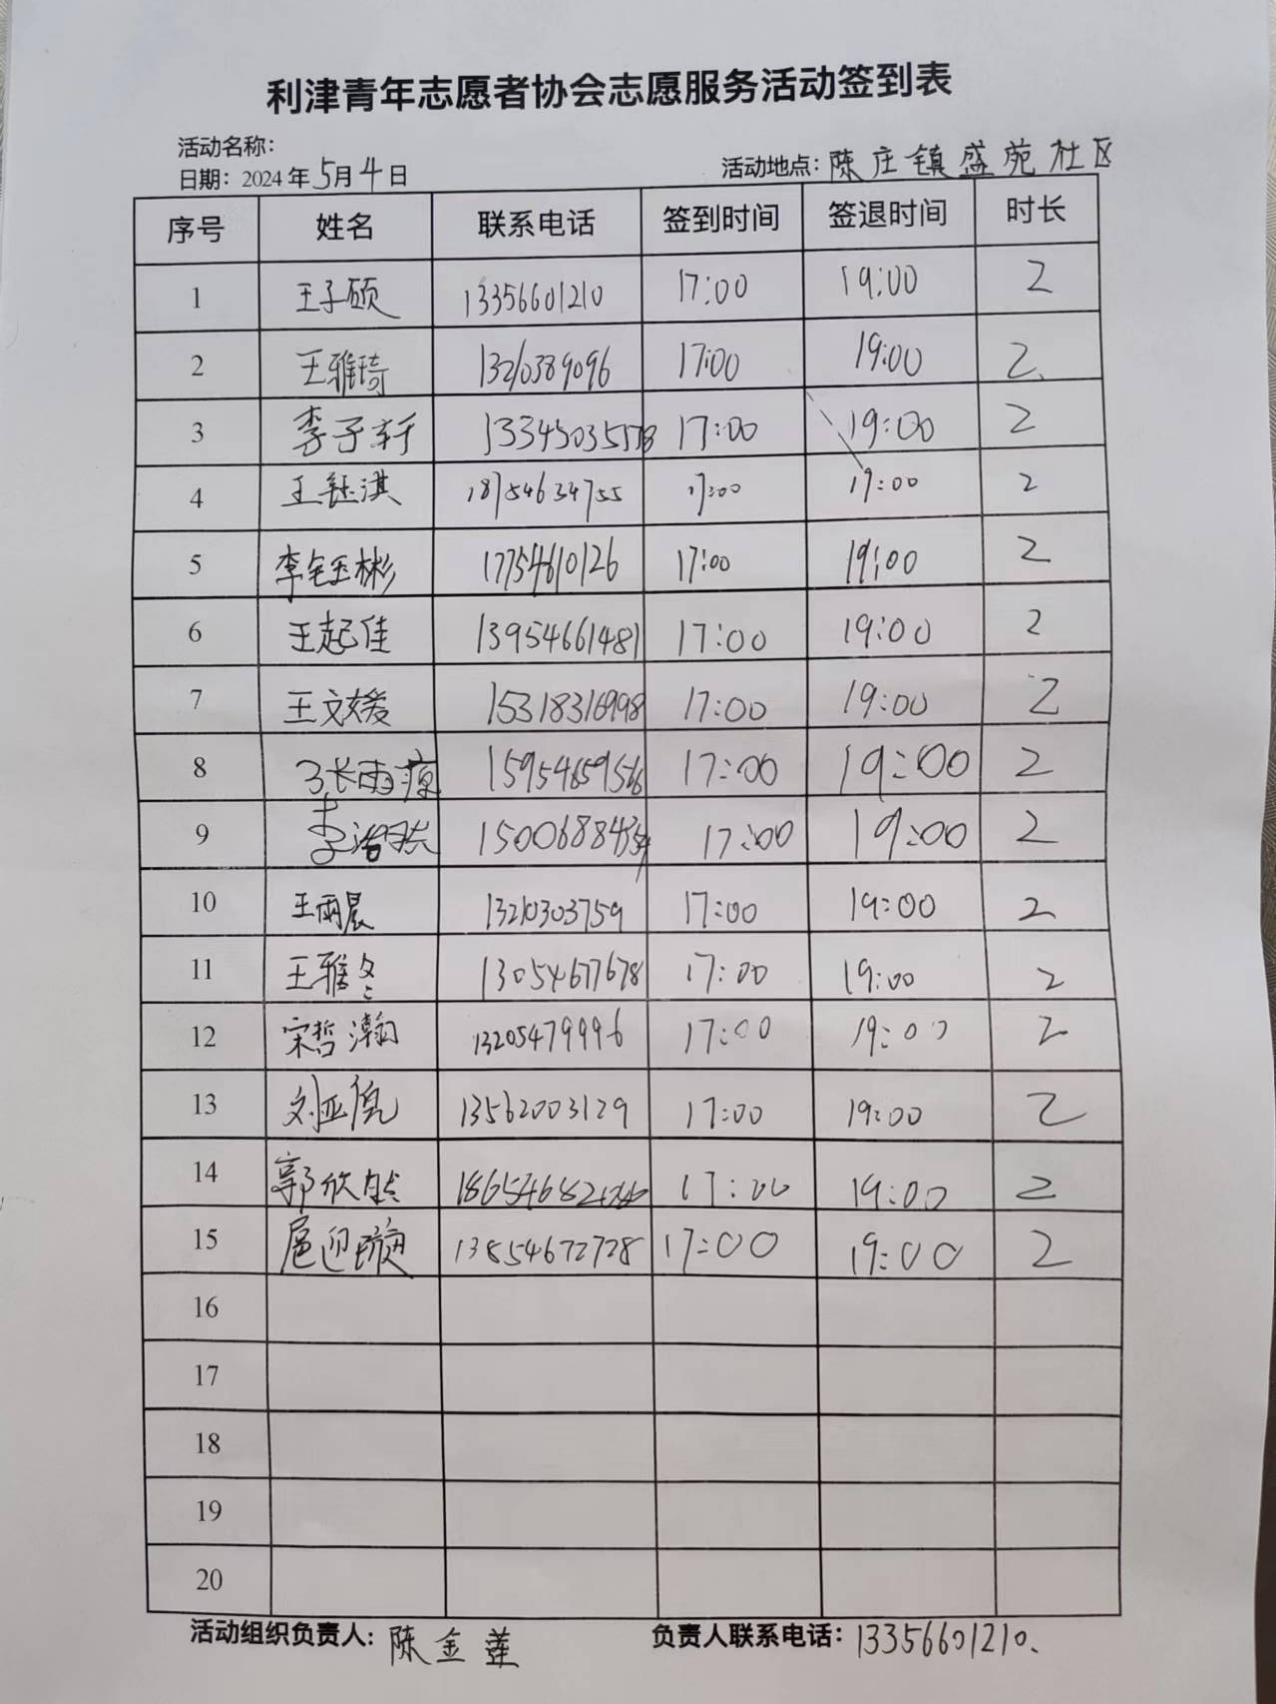 利津青年志愿者协会志愿服务活动签到表
活动名称:
日期: 2024年5月4日 活动地点: 陈庄镇盛苑社区
序号 姓名 联系电话 签到时间 签退时间 时长
1 王子硕 13356601210 17:00 19:00 2
2 王雅琦 13210389096 17:00 19:00 2
3 李子轩 17:00 19:00 2
4 王钰淇 18754634755 17:00 19:00 2
5 17754610126 17:00 19:00 2
6 王起佳 13954661481 17:00 19:00 2
7 王文媛 15318316998 17:00 19:00 2
8 15954659566 17:00 19:00 2
9 17:00 19:00 2
10 王雨晨 13210303759 17:00 19:00 2
11 王雅冬 13054677678 17:00 19:00 2
12 宋哲瀚 13205479996 17:00 19:00 2
13 13562003129 17:00 19:00 2
14 17:00 19:00 2
15 扈迎璇 13854672728 17:00 19:00 2
16
17
18
19
20
活动组织负责人: 陈金莲 负责人联系电话: 13356601210.